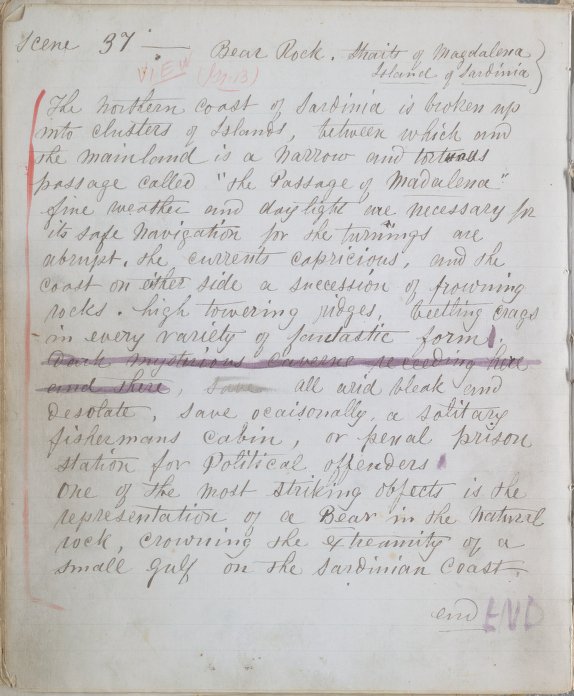 Scene 37 — Bear Rock. Straits of Magdalena
Island of Sardinia
VIEW
The northern coast of Sardinia is broken up
into clusters of Islands, between which and
the mainland is a narrow and tortuous
passage called "the Passage of Madalena"
fine weather and daylight are necessary for
its safe navigation for the turnings are
abrupt, the currents capricious, and the
coast on either side a succession of frowning
rocks. high towering ridges, beetling crags
in every variety of fantastic form,
Dark mysterious caverns receeding here
and there, save all arid bleak and
desolate, save ocaisonally, a solitary
fishermans cabin, or penal prison
station for Political offenders.
One of the most striking objects is the
representation of a Bear in the natural
rock, crowning the extreamity of a
small gulf on the Sardinian Coast.
end END